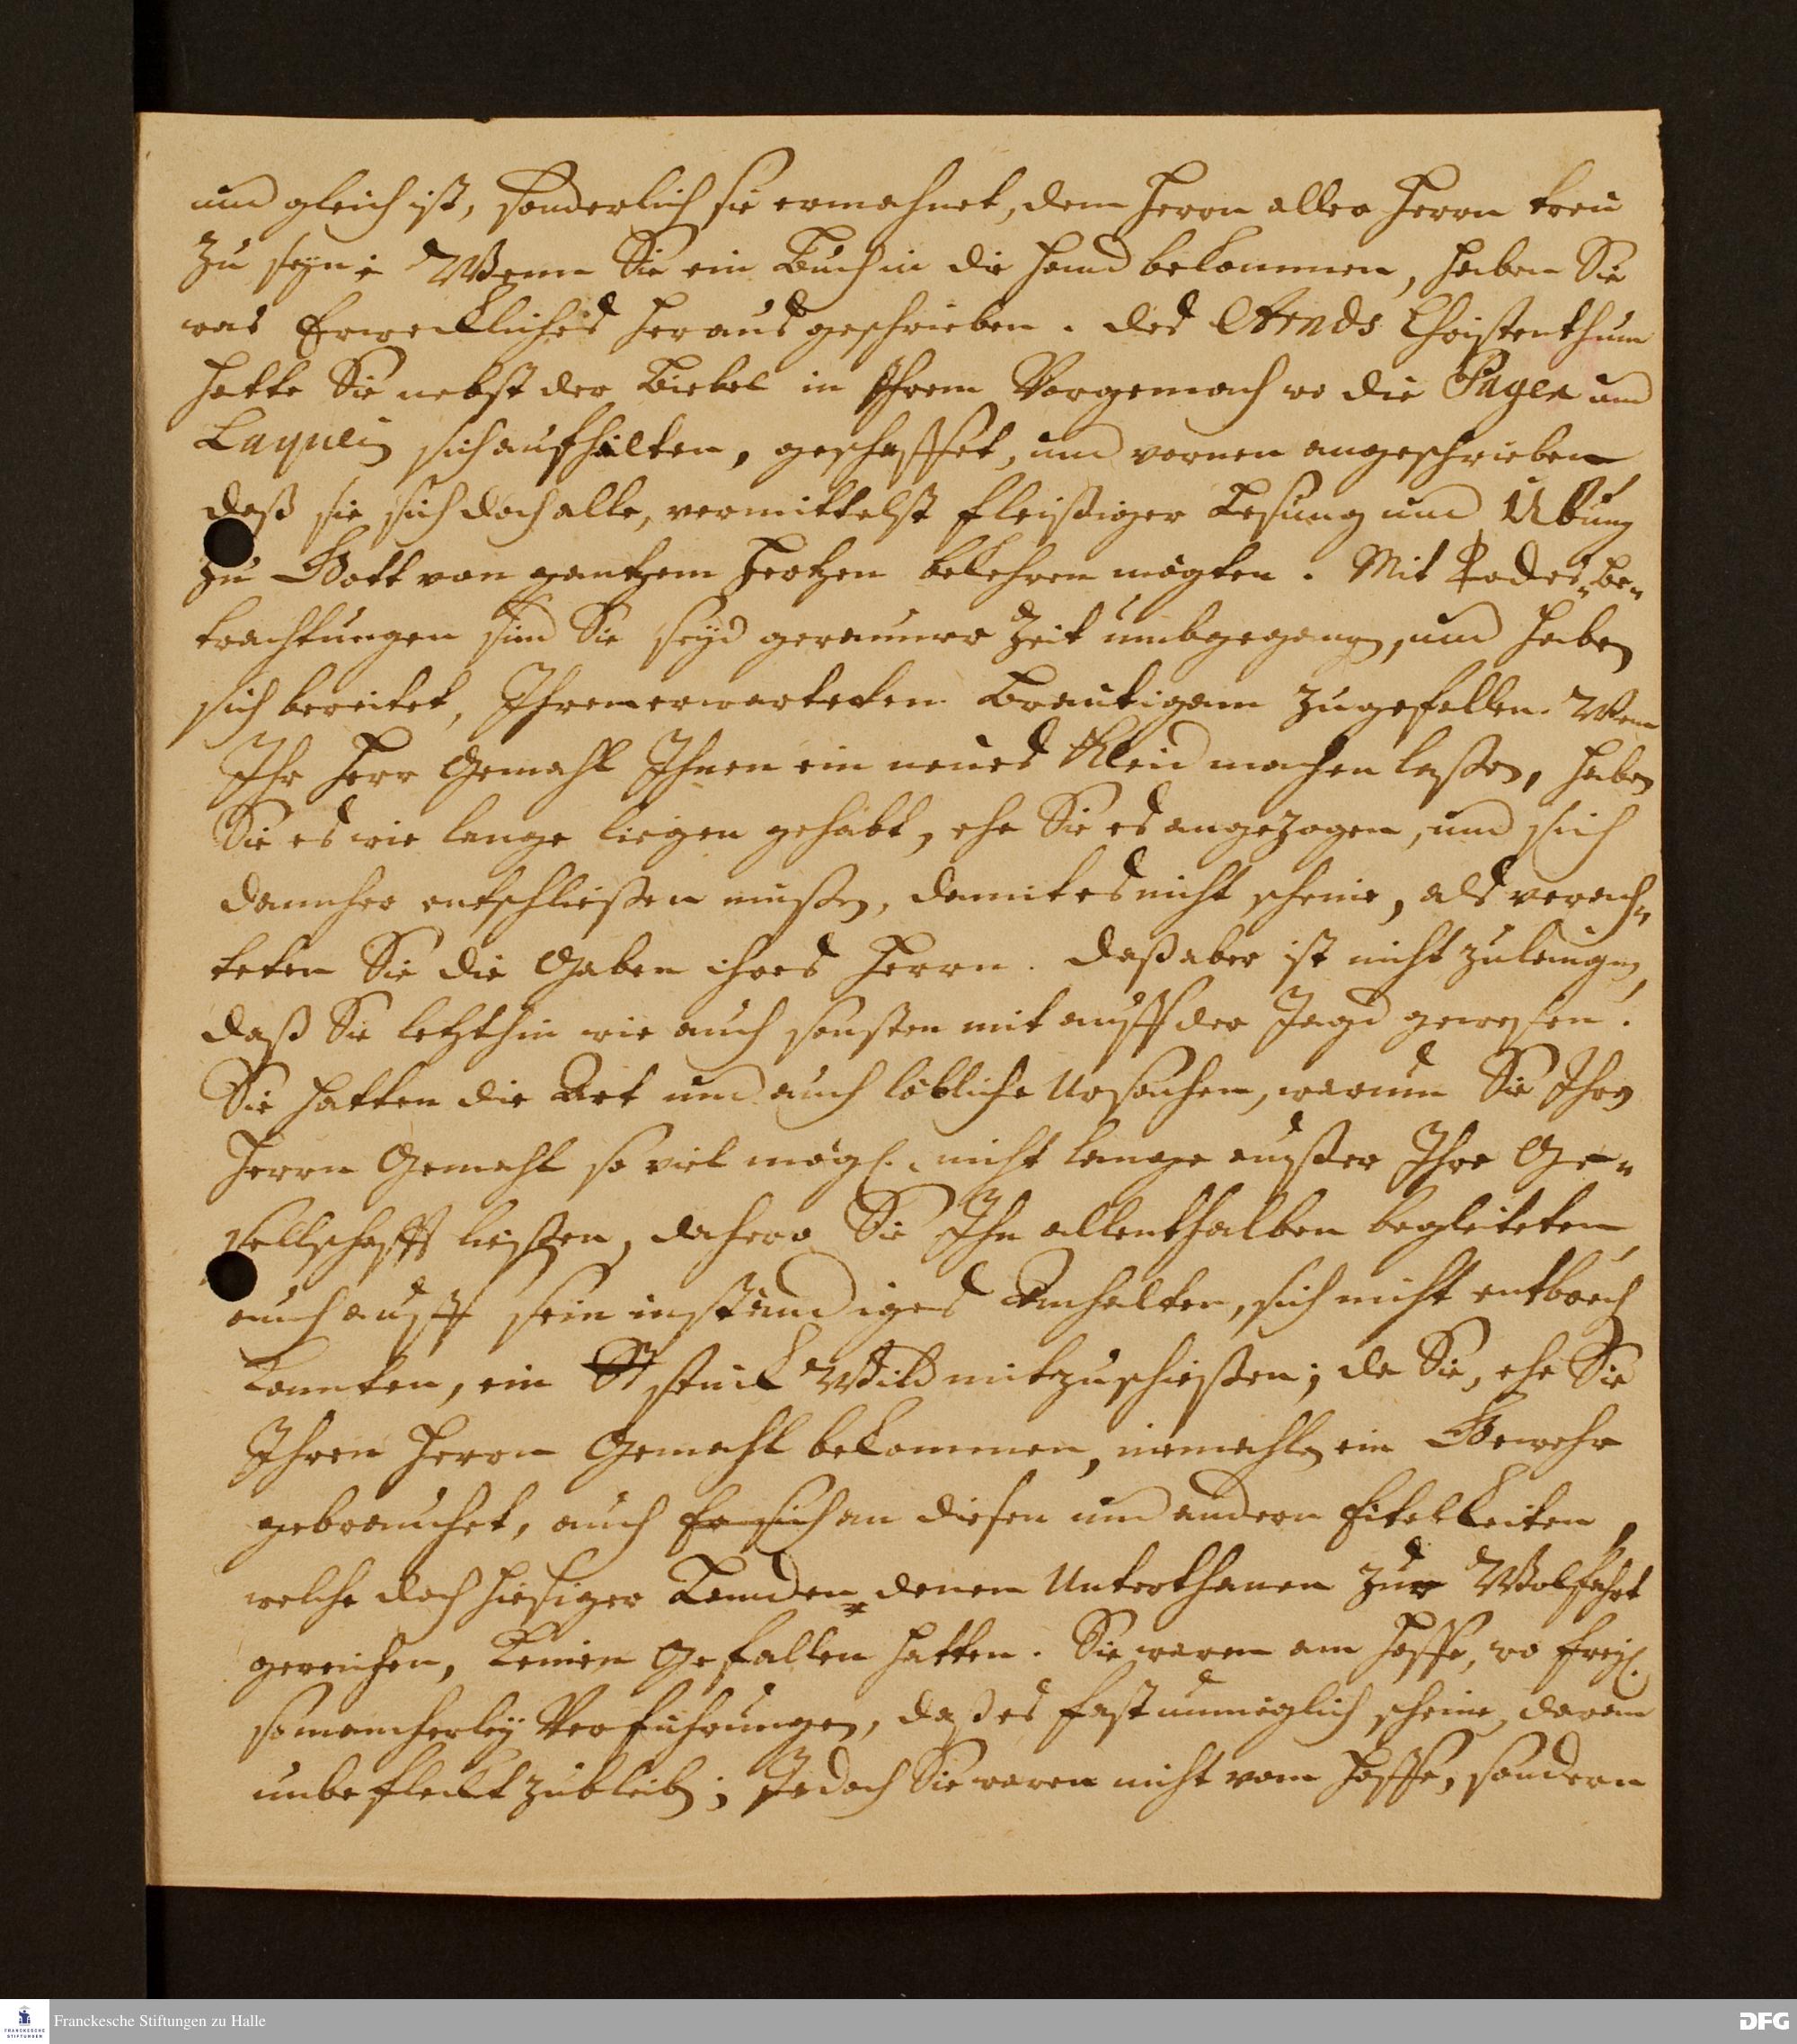 und gleich ist, sonderlich sie ermahnet, dem Herrn aller Herrn treu
zu seyn: Wenn Sie ein Buch in die Hand bekommen, haben Sie
was Erweckliches heraus geschrieben. Des Arnds Christenthum
hatte Sie nebst der Biebel in Ihrem Vorgemach wo die Pagen und
Laqueis sich aufhalten, geschaffet, und vornen angeschrieben
daß sie sich doch alle, vermittelst fleißiger Lesung und Übung
zu Gott von gantzem Hertzen bekehren mögten. Mit Todes-Be-
trachtungen sind Sie seyd geraumer Zeit umbgegangen, und haben
sich bereitet, Ihrem erwarteten Bräutigam zugefallen. Wenn
Ihr Herr Gemahl Ihnen ein neues Kleid machen laßen, haben
Sie es wie lange liegen gehabt, ehe Sie es angezogen, und sich
dannher entschließen müßen, damit es nicht scheine, als verach-
teten Sie die Gaben ihres Herrn. Daß aber ist nicht zuleugnen,
daß Sie letzthin wie auch sonsten mit auff der Jagd gewesen.
Sie hatten die Art und auch löbliche Ursachen, warum Sie Ihren
Herrn Gemahl so viel mögl. nicht lange außer Ihre Ge-
sellschafft ließen, dahero Sie Ihn allenthalben begleiteten
auch auff sein inständiges Anhalten, sich nicht entbrech
konnten, ein St stück Wild mitzuschießen; da Sie, ehe Sie
Ihren Herrn Gemahl bekommen, niemahls ein Gewehr
gebrauchet, auch sich an diesen und andern Eitelkeiten,
welche doch hiesiger Landen denen Unterthanen zur Wolfahrt
gereichen, keinen Gefallen hatten. Sie waren am Hoffe, wo freyl.
so mancherley Verführungen, daß es fast unmöglich scheine, daran
unbefleckt zubleiben; Jedoch Sie waren nicht vom Hoffe, sondern
Franckesche Stiftungen zu Halle
FRANCKESCHE STIFTUNGEN
DFG